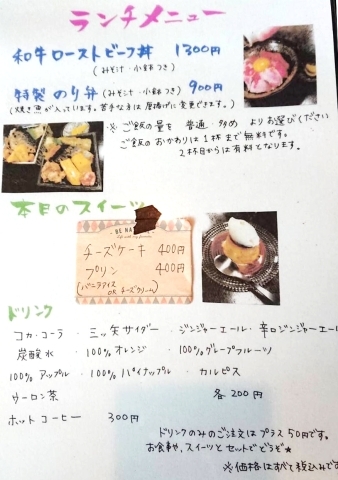 ランチメニュー
和牛ローストビーフ丼 1300円
(みそ汁・小鉢つき)
特製 のり弁 (みそ汁・小鉢つき) 900円
(焼き魚が入っています。苦手な方は唐揚げに変更できます。)
※ご飯の量を 普通・多め よりお選びください
ご飯のおかわりは1杯まで無料です。
2杯目からは有料となります。
本日のスイーツ
チーズケーキ 400円
プリン 400円
(バニラアイス
OR チーズクリーム)
ドリンク
コカ・コーラ ・ 三ッ矢サイダー ・ ジンジャーエール・辛口ジンジャーエール
炭酸水 ・ 100%オレンジ ・ 100%グレープフルーツ
100%アップル ・ 100%パイナップル ・ カルピス
ウーロン茶 各200円
ホットコーヒー 300円
ドリンクのみのご注文はプラス50円です。
お食事や、スイーツとセットでどうぞ★
※価格はすべて税込みです